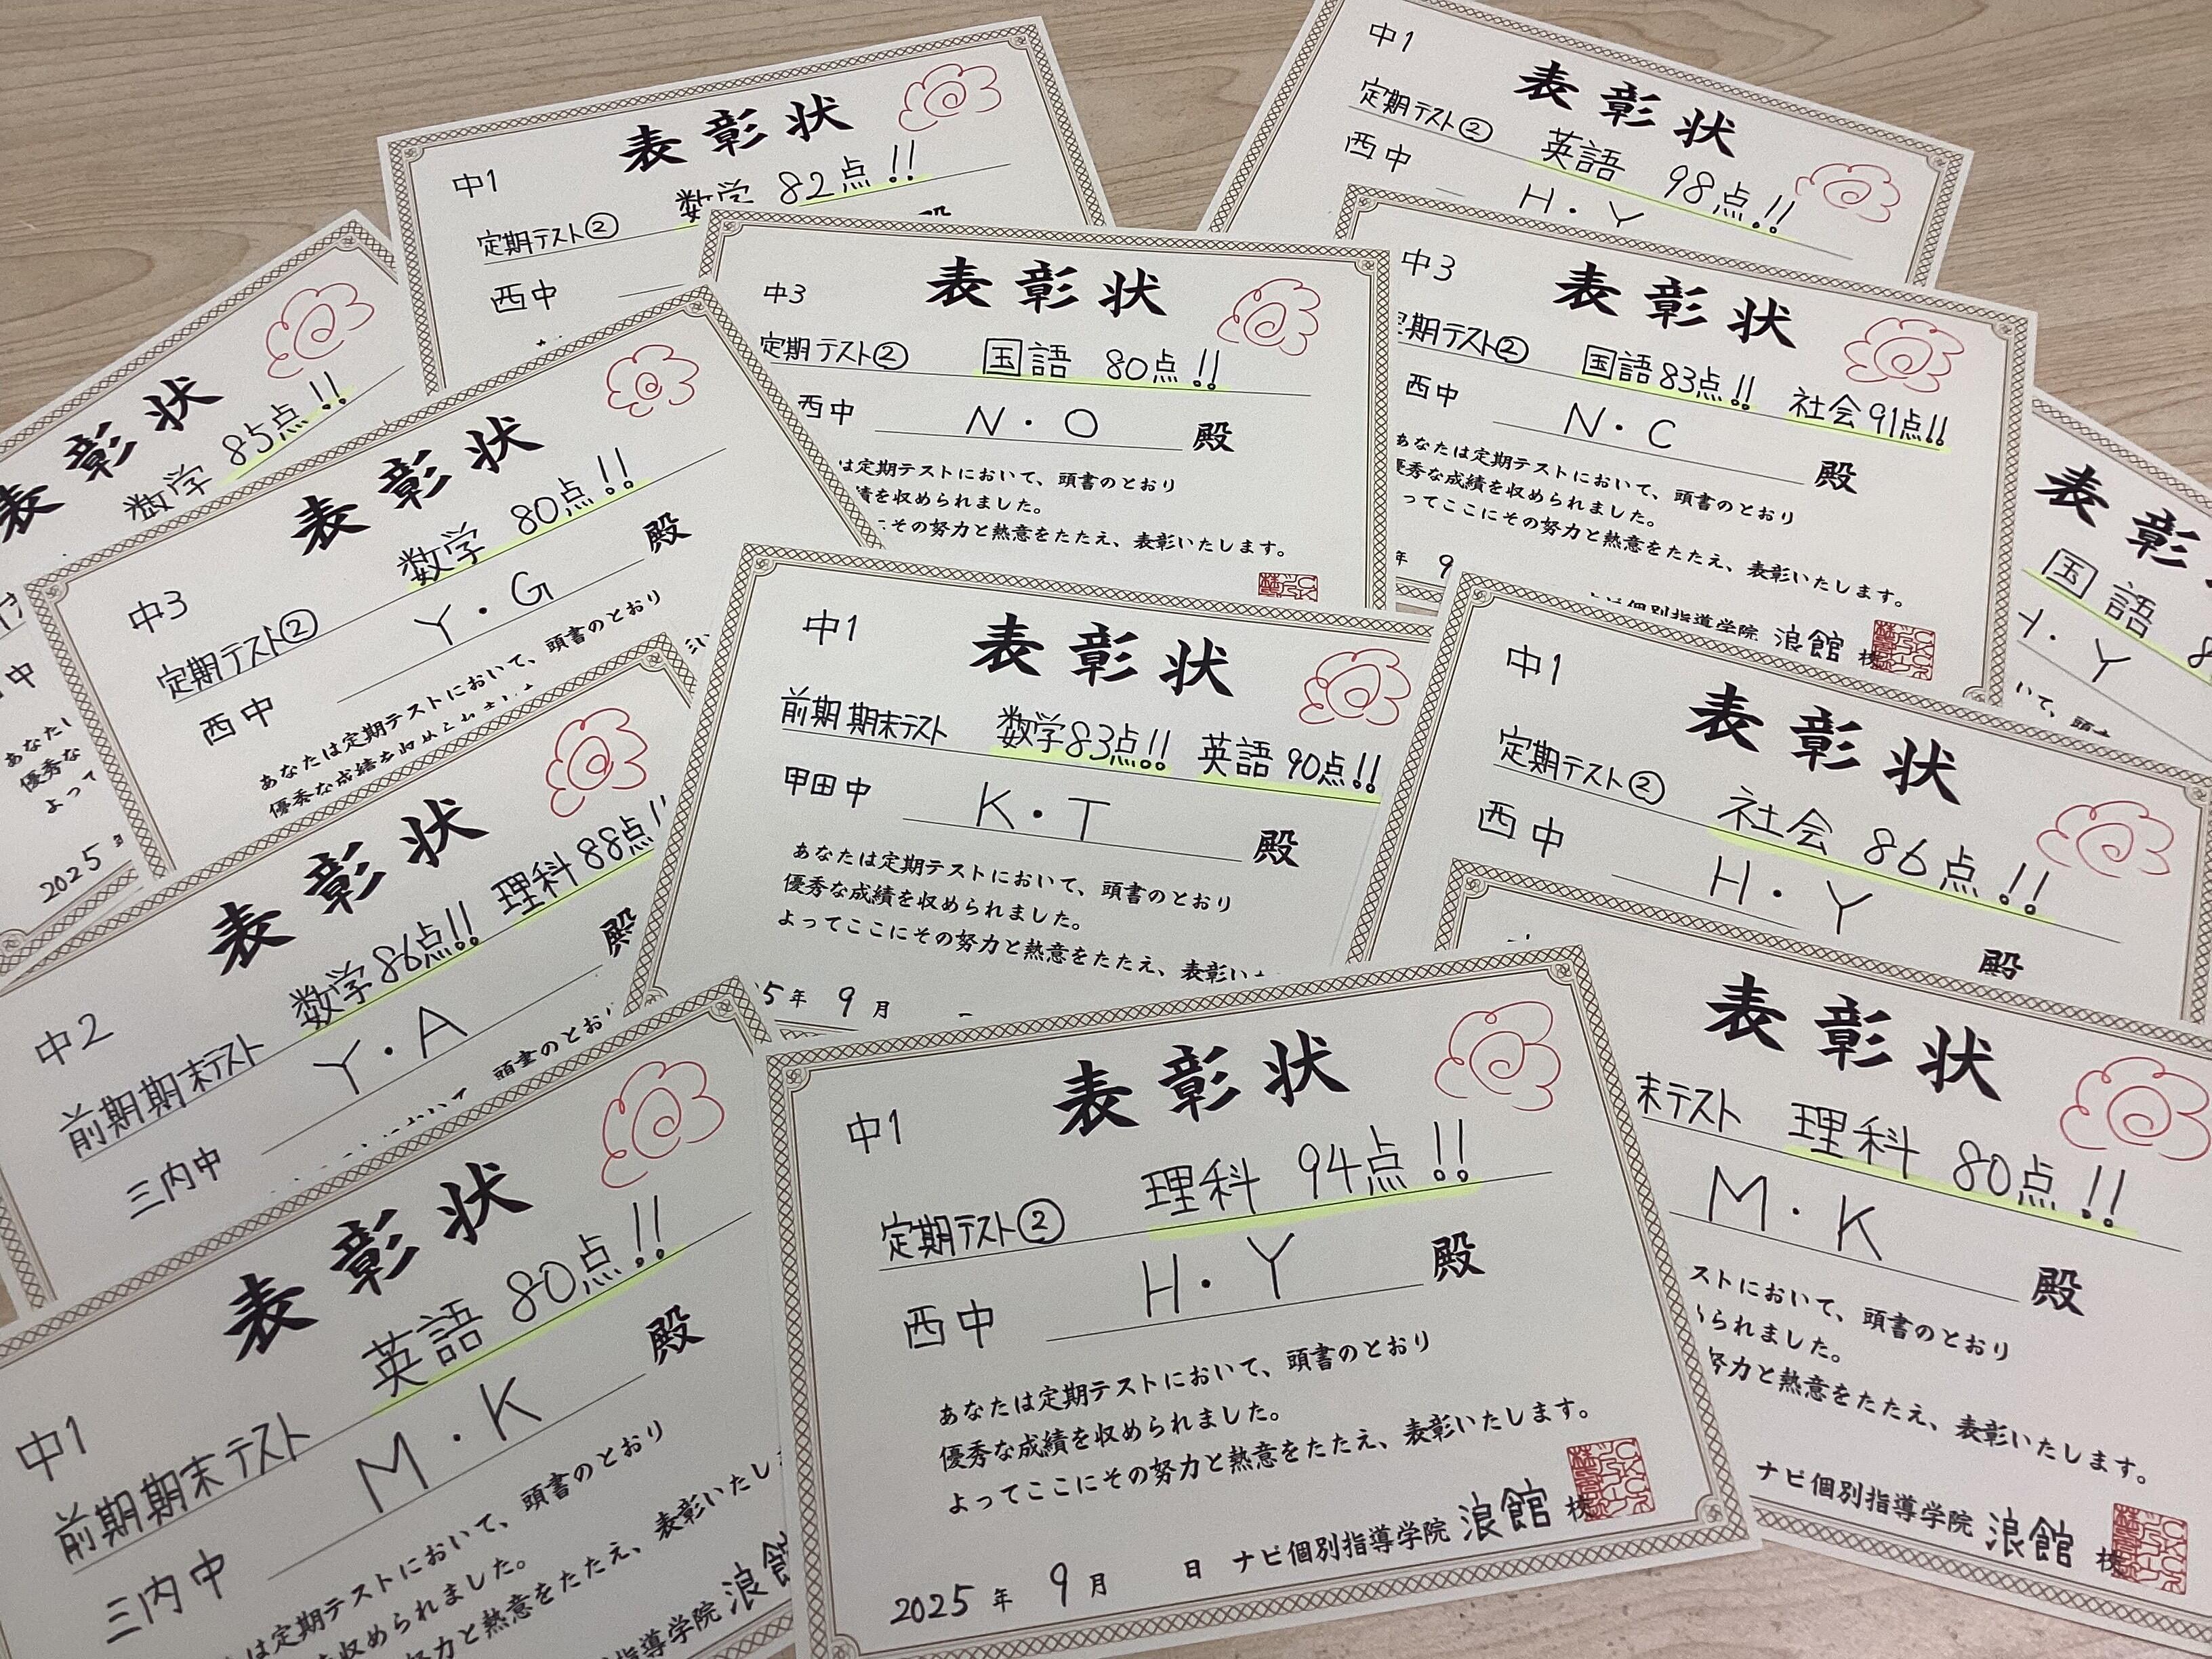 中1
表彰状
定期テスト②
数学 82点!!
西中
中1
表彰状
定期テスト②
英語 98点!!
西中
H・Y
表彰状
数学 85点!!
中
優秀な
よって
2025
中3
表彰状
定期テスト②
国語 80点!!
西中
N・O 殿
は定期テストにおいて、頭書のとおり
績を収められました。
にその努力と熱意をたたえ、表彰いたします。
中3
表彰状
定期テスト②
国語83点!! 社会91点!!
西中
N・C 殿
あなたは定期テストにおいて、頭書のとおり
優秀な成績を収められました。
ってここにその努力と熱意をたたえ、表彰いたします。
年 9
個別指導学院 浪館 校
表彰
国語
H・Y
いて、頭
中3
表彰状
定期テスト②
数学 80点!!
西中
Y・G 殿
あなたは定期テストにおいて、頭書のとおり
優秀な成績を収められました
中1
表彰状
前期期末テスト
数学83点!! 英語90点!!
甲田中
K・T 殿
あなたは定期テストにおいて、頭書のとおり
優秀な成績を収められました。
よってここにその努力と熱意をたたえ、表彰い
5年 9月
中1
表彰状
定期テスト②
社会 86点!!
西中
H・Y 殿
中2
表彰状
前期期末テスト
数学86点!! 理科88点!
三内中
Y・A 殿
頭書のとおり
表彰状
末テスト
理科 80点!!
M・K 殿
ストにおいて、頭書のとおり
られました。
努力と熱意をたたえ、表彰いたします。
ナビ個別指導学院 浪館 校
中1
表彰状
前期期末テスト
英語 80点!!
三内中
M・K 殿
は定期テストにおいて、頭書のとおり
収められました。
努力と熱意をたたえ、表彰いたし
指導学院 浪館
中1
表彰状
定期テスト②
理科 94点!!
西中
H・Y 殿
あなたは定期テストにおいて、頭書のとおり
優秀な成績を収められました。
よってここにその努力と熱意をたたえ、表彰いたします。
2025年 9月 日 ナビ個別指導学院 浪館 校